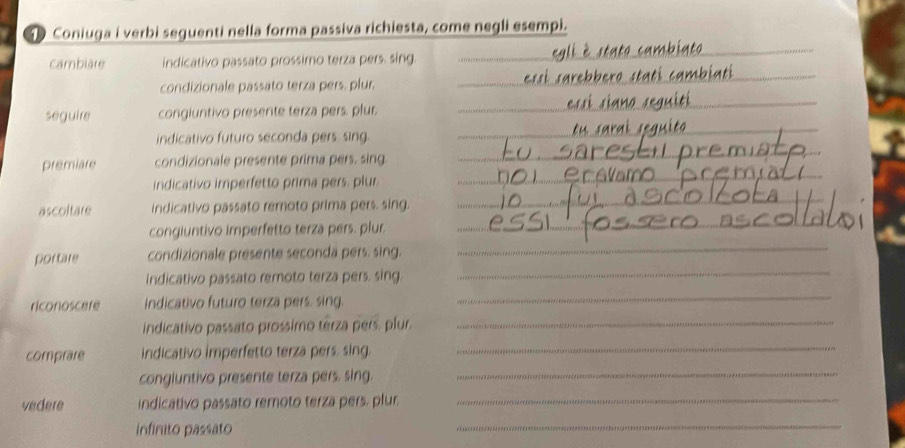 1 Coniuga i verbi seguenti nella forma passiva richiesta, come negli esempi.
cambiare indicativo passato prossimo terza pers. sing. egli è stato cambiato
condizionale passato terza pers. plur. essi sarebbero stati cambiati
seguire congiuntivo presente terza pers. plur. essi siano seguiti
indicativo futuro seconda pers. sing. tu sarai seguito
premiare condizionale presente prima pers. sing. tu sarestil premiato
indicativo imperfetto prima pers. plur. noi eravamo premiati
ascoltare indicativo passato remoto prima pers. sing. io fui ascoltota
congiuntivo imperfetto terza pers. plur. essi fossero
portare condizionale presente seconda pers. sing.
indicativo passato remoto terza pers. sing.
riconoscere indicativo futuro terza pers. sing.
indicativo passato prossimo terza pers. plur.
comprare indicativo imperfetto terza pers. sing.
congiuntivo presente terza pers. sing.
vedere indicativo passato remoto terza pers. plur.
infinito passato